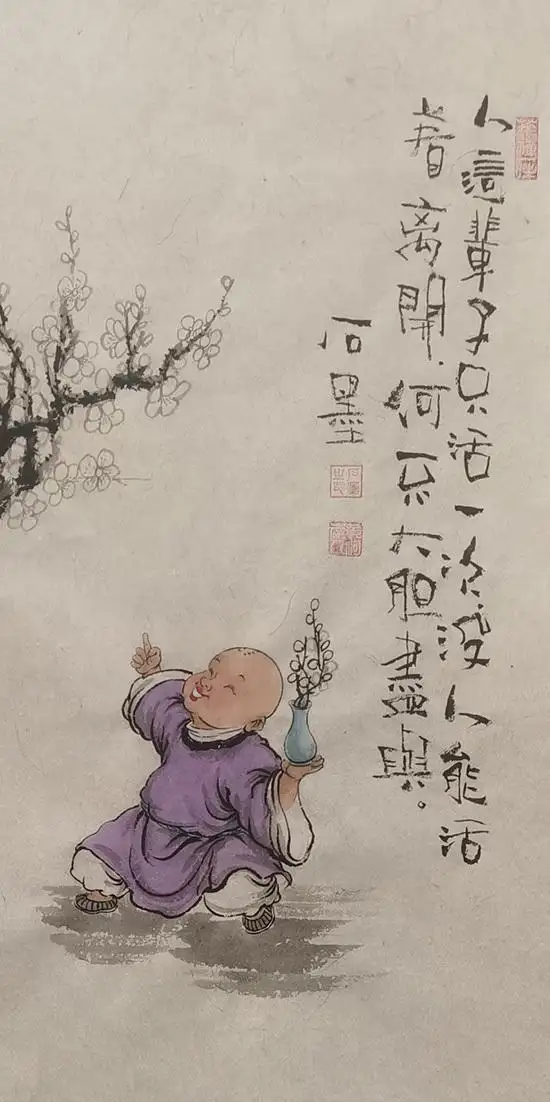 人這輩子只活一次,没人能活
着离開,何不大胆盡興。
石墨